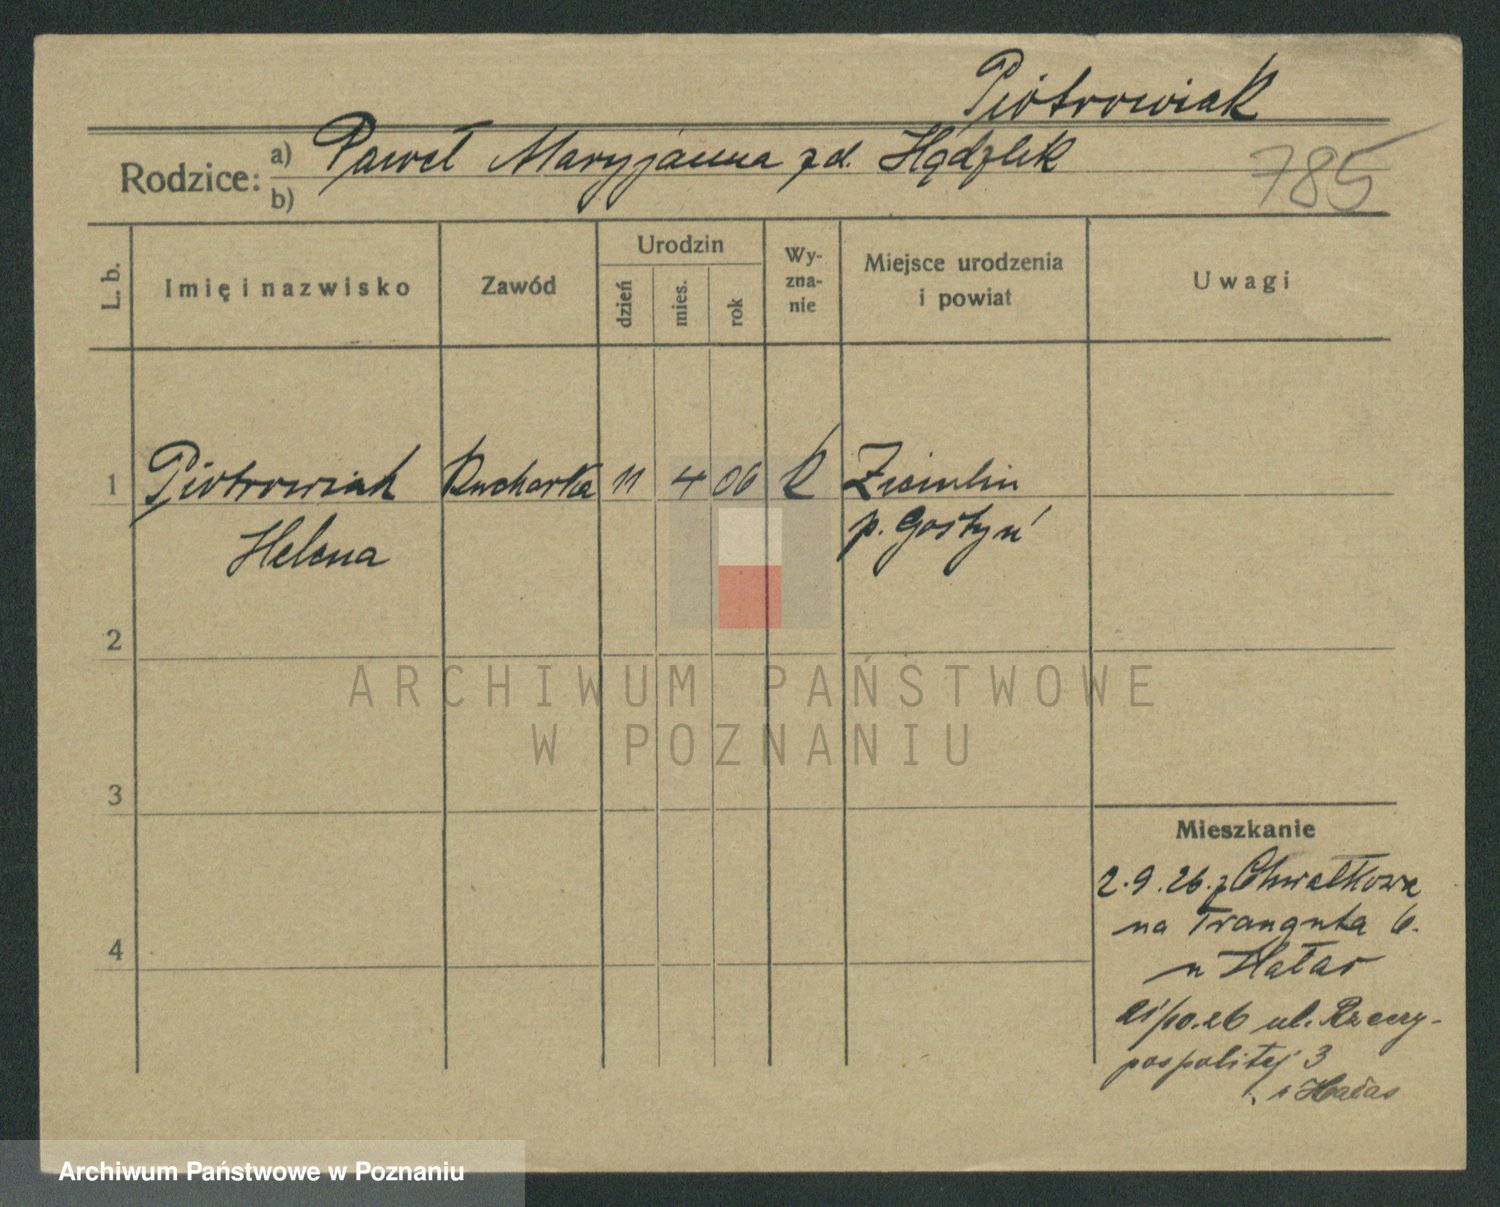 Piotrowiak
Rodzice: a) Paweł Maryjanna zd.
b)
785
L. b.
Imię i nazwisko
Zawód
Urodzin
dzień
mies.
rok
Wy-
zna-
nie
Miejsce urodzenia
i powiat
Uwagi
1 Piotrowiak Kucharka 11 4 06 K Ziemlin
Helena p. Gostyń
2
ARCHIWUM PAŃSTWOWE
W POZNANIU
3
Mieszkanie
2.9.26. z Chwałkowa
na Traugutta 6.
u Hałas
ul. Rzeczy-
pospolitej 3
Hałas
4
Archiwum Państwowe w Poznaniu